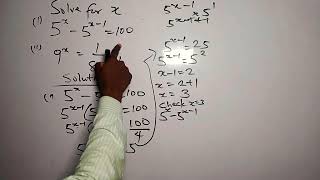 Solve for x
(i) 5^x - 5^(x-1) = 100
(ii) 9^x = 1
Solution
(i) 5^x - 5 = 100
5^(x-1)(5 = 100
5^(x-1) 100/4
5
5^(x-1) × 5^1
5^(x-1+1)
5^(x-1) = 25
5^(x-1) = 5^2
x-1 = 2
x = 2+1
x = 3
Check x=3
5^x - 5^(x-1)